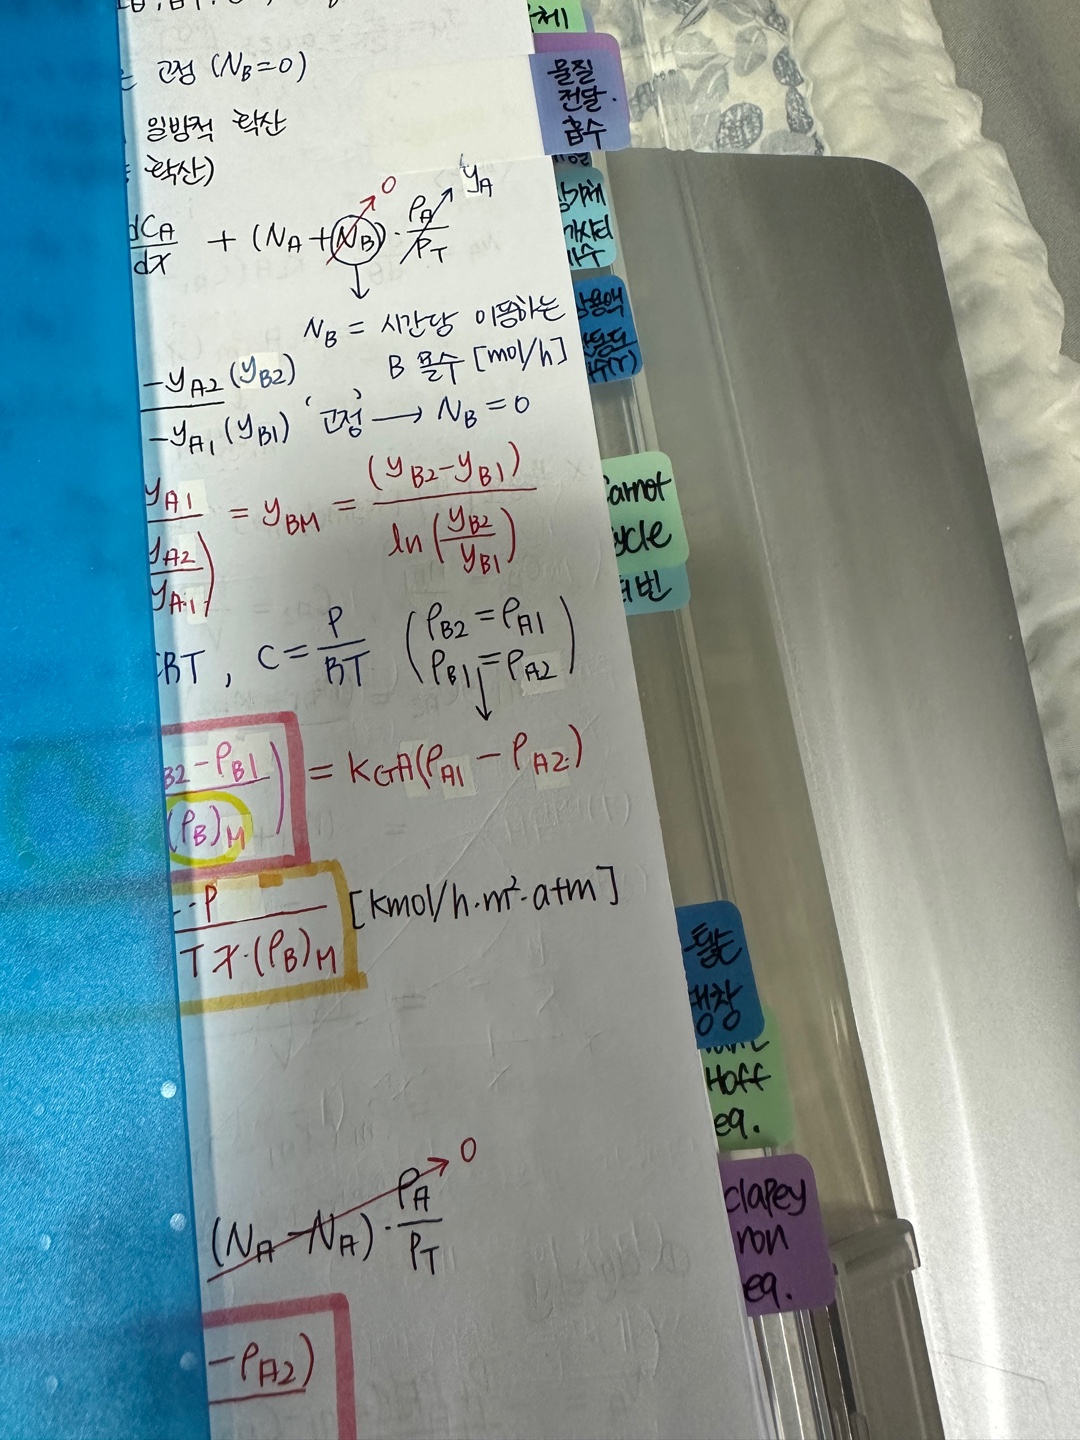 고정 (N_B=0)
일방적 확산
확산)
dC_A/dx + (N_A+N_B)·P_A/P_T
0
y_A
N_B = 시간당 이동하는
B 몰수 [mol/h]
-y_A2 (y_B2)
-y_A1 (y_B1) '고정' → N_B = 0
y_A1 = y_BM = (y_B2-y_B1)/ln(y_B2/y_B1)
y_A2
y_A1)
RT, C = P/RT (P_B2=P_A1
P_B1=P_A2)
B2-P_B1) = k_G A(P_A1 - P_A2)
(P_B)_M
P [kmol/h·m²·atm]
T x·(P_B)_M
(N_A-N_A)·P_A/P_T
0
-P_A2)
물질
전달.
흡수
Carnot
cycle
Hoff
eq.
clapey
ron
eq.